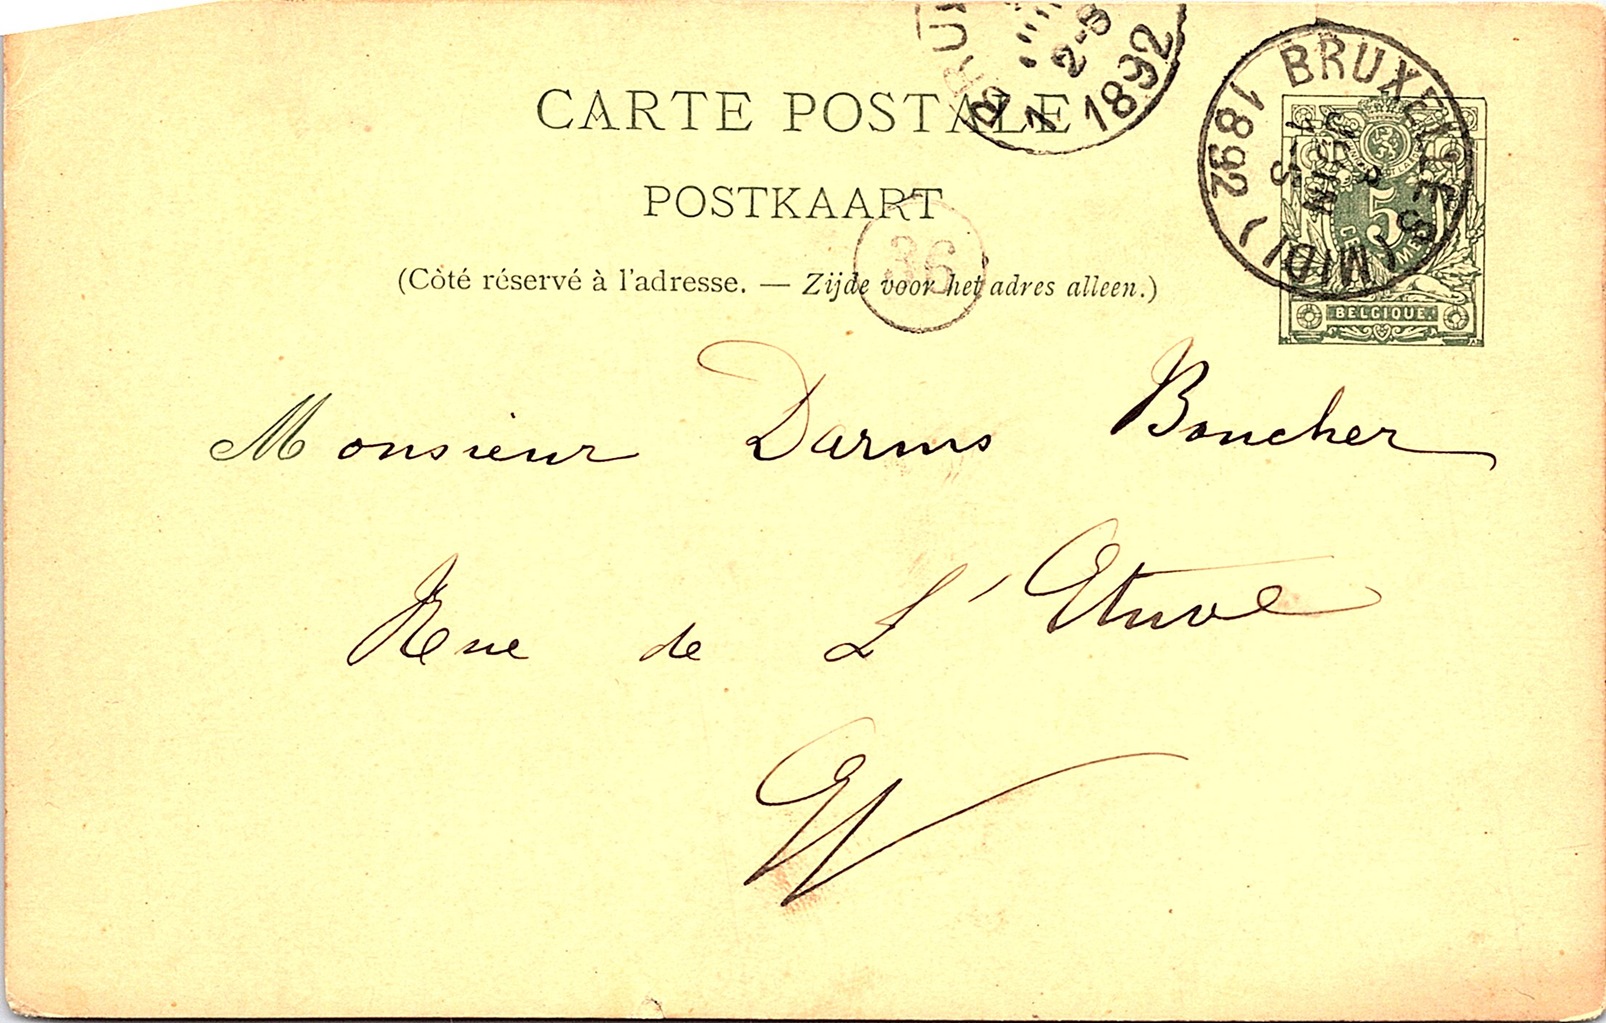 CARTE POSTALE
POSTKAART
(Côté réservé à l'adresse. — Zijde voor het adres alleen.)
36
1892
2-S
BRUXELLES (MIDI) 1892
JUIN
5
BELGIQUE
Monsieur Darms Boucher
Rue de L'Etuve